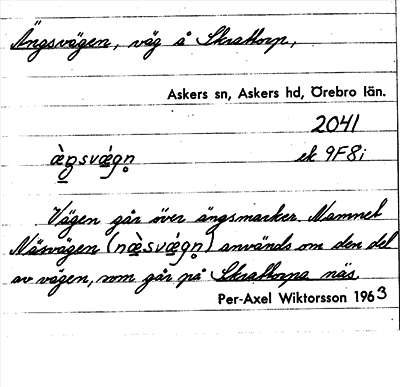 Ängsvägen, väg å Skrattorp,
Askers sn, Askers hd, Örebro län.
2041
æ̀ŋsvǽgn̥ ek 9F8i
Vägen går över ängsmarker. Namnet
Näsvägen (næ̀svǽgn̥) används om den del
av vägen, som går på Skrattorpa näs
Per-Axel Wiktorsson 1963